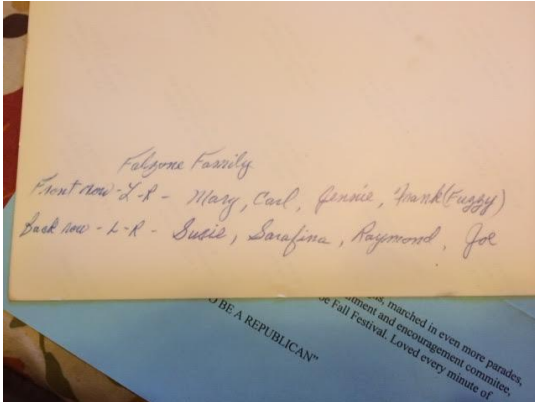 Falzone Family
Front row - L-R - Mary, Carl, Jennie, Frank (Fuzzy)
Back row - L-R - Susie, Sarafina, Raymond, Joe
marched in even more parades,
ment and encouragement commitee,
Fall Festival. Loved every minute of
O BE A REPUBLICAN"